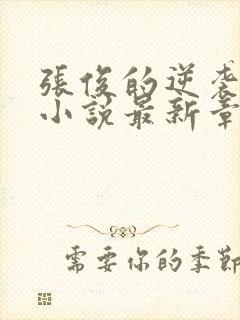 張俊的逆袭
小説最新章
需要你的季節